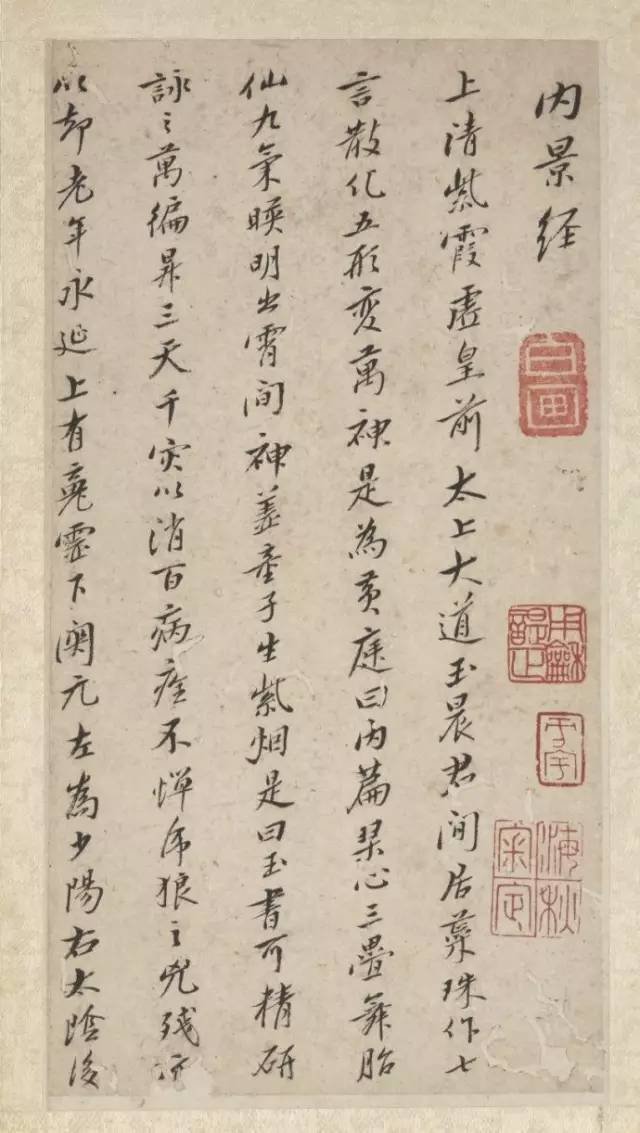 内景经
上清紫霞虛皇前太上大道玉晨君閒居蘂珠作七
言散化五形变萬神是為黄庭曰内篇琹心三疊舞胎
仙九氣暎明出霄間神葢童子生紫烟是曰玉書可精研
詠之萬徧昇三天千灾以消百病痊不惮虎狼之兇残亦
以却老年永延上有䰟霊下関元左為少陽右太陰後